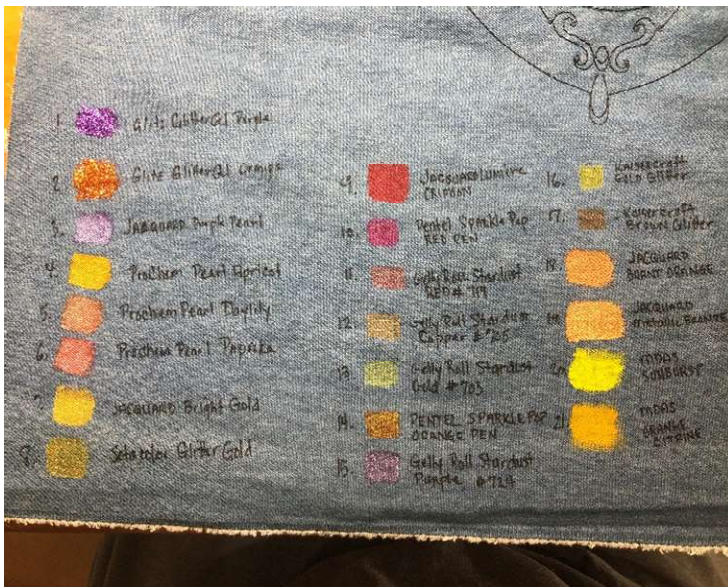 1. Glitz Glitter Gel Purple
2. Glitz Glitter Gel Orange
3. JACQUARD Purple Pearl
4. ProChem Pearl Apricot
5. Prochem Pearl Daylily
6. Prochem Pearl Paprika
7. JACQUARD Bright Gold
8. Setacolor Glitter Gold
9. JACQUARD LUMIERE
CRIMSON
10. Pentel Sparkle Pop
RED PEN
11. Gelly Roll Stardust
RED # 719
12. Gelly Roll Stardust
Copper # 725
13. Gelly Roll Stardust
Gold # 703
14. PENTEL SPARKLE POP
ORANGE PEN
15. Gelly Roll Stardust
Purple # 724
16. Kaisercraft
Gold Glitter
17. Kaisercraft
BROWN Glitter
18. JACQUARD
BURNT ORANGE
19. JACQUARD
metallic BRONZE
20. MDAS
SUNBURST
21. MDAS
ORANGE
CITRINE